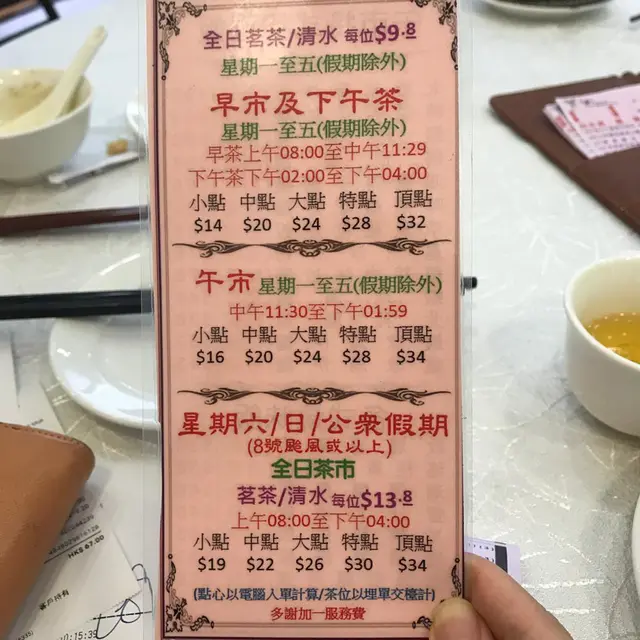 全日茗茶/清水 每位$9.8
星期一至五(假期除外)
早市及下午茶
星期一至五(假期除外)
早茶上午08:00至中午11:29
下午茶下午02:00至下午04:00
小點 中點 大點 特點 頂點
$14 $20 $24 $28 $32
午市 星期一至五(假期除外)
中午11:30至下午01:59
小點 中點 大點 特點 頂點
$16 $20 $24 $28 $34
星期六/日/公眾假期
(8號颱風或以上)
全日茶市
茗茶/清水 每位$13.8
上午08:00至下午04:00
小點 中點 大點 特點 頂點
$19 $22 $26 $30 $34
(點心以電腦入單計算/茶位以埋單交檯計)
多謝加一服務費
HK$ 67.00
客戶持有